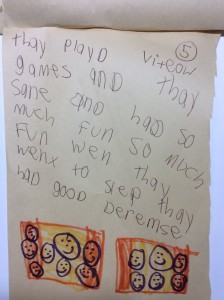 5
thay playD viteow
games AND thay
sane and had so
much fun so much
Fun wen thay
wenx to slep thay
had good Deremse